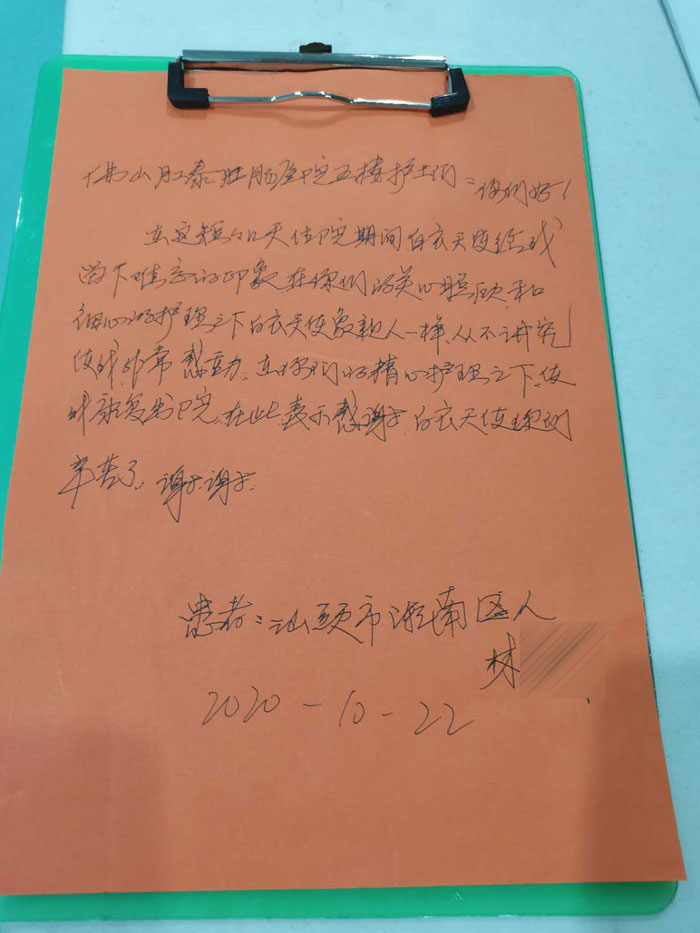 佛山肛泰肛肠医院五楼护士们：你们好！
在这短短几天住院期间白衣天使给我
留下难忘的印象在你们的关心照顾和
细心的护理之下白衣天使象亲人一样，从不讲究
使我非常感动，在你们的精心护理之下，使
我康复出院，在此表示感谢，白衣天使你们
辛苦了，谢谢谢谢
患者：汕头市潮南区人
林
2020-10-22